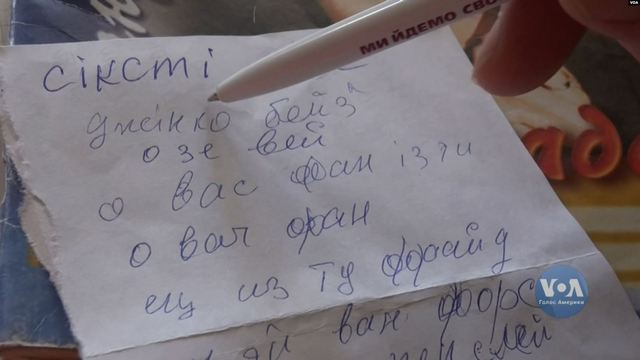 МИ ЙДЕМО СВО
сіксті
джінко бейз
о зе вей
о вас фан із ти
о вач фан
ец из ту ффрайд
ван форс
слей
VOA
Голос Америки
VOA